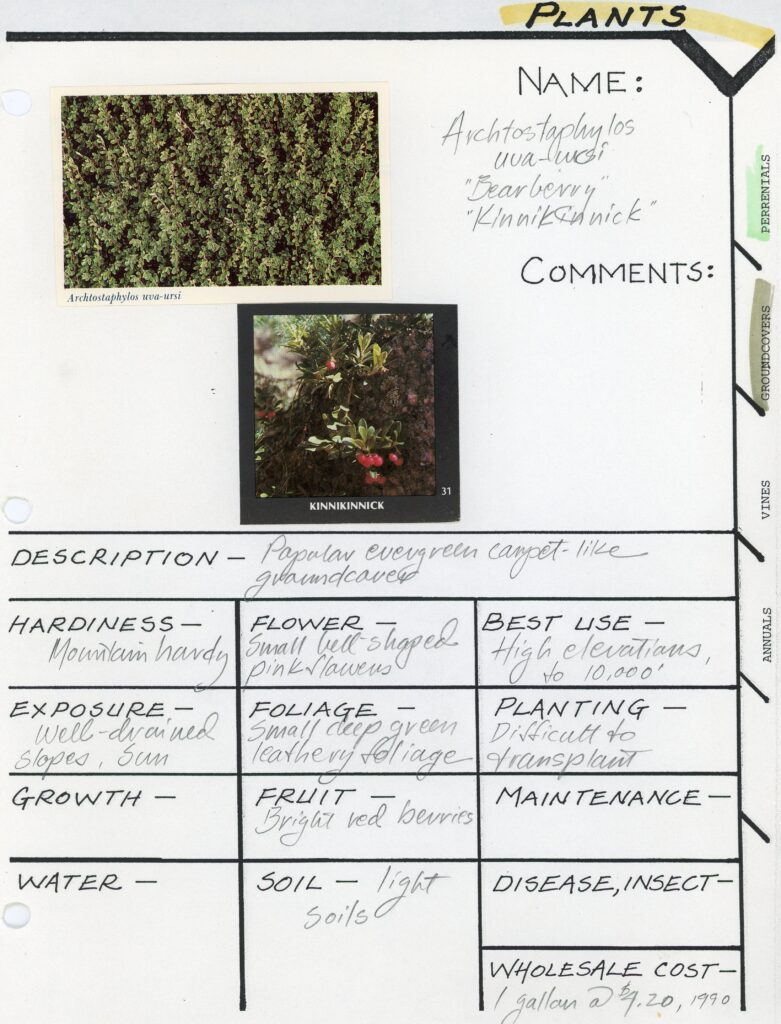 PLANTS
NAME:
Archtostaphylos
uva-ursi
"Bearberry"
"Kinnikinnick"
COMMENTS:
Archtostaphylos uva-ursi
31
KINNIKINNICK
PERRENIALS
GROUNDCOVERS
VINES
ANNUALS
DESCRIPTION – Popular evergreen carpet-like
groundcover
HARDINESS –
Mountain hardy
FLOWER –
Small bell-shaped
pink flowers
BEST USE –
High elevations,
to 10,000'
EXPOSURE –
Well-drained
slopes, Sun
FOLIAGE –
Small deep green
leathery foliage
PLANTING –
Difficult to
transplant
GROWTH –
FRUIT –
Bright red berries
MAINTENANCE –
WATER –
SOIL – light
soils
DISEASE, INSECT –
WHOLESALE COST –
1 gallon @ $4.20, 1990